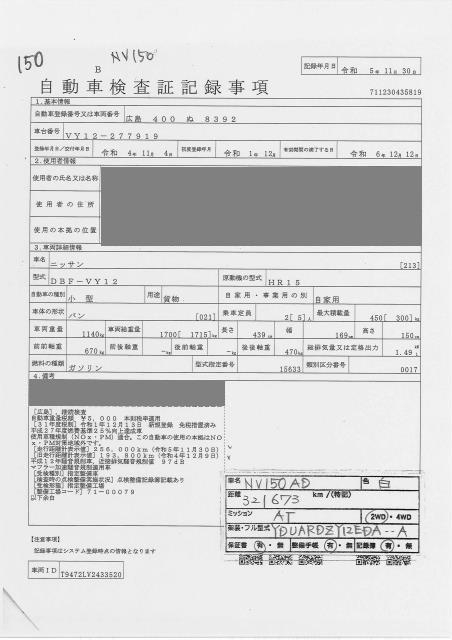 150
NV150
B
記録年月日 令和 5年 11月 30日
自動車検査証記録事項
711230435819
1.基本情報
自動車登録番号又は車両番号 広島 400 ぬ 8392
車台番号 VY12-277919
登録年月日/交付年月日 令和 4年 11月 4日 初度登録年月 令和 1年 12月 有効期間の満了する日 令和 6年 12月 12日
2.使用者情報
使用者の氏名又は名称
使用者の住所
使用の本拠の位置
3.車両詳細情報
車名 ニッサン [213]
型式 DBF-VY12 原動機の型式 HR15
自動車の種別 小型 用途 貨物 自家用・事業用の別 自家用
車体の形状 バン [021] 乗車定員 2[ 5]人 最大積載量 450[ 300]kg
車両重量 1140kg 車両総重量 1700[ 1715]kg 長さ 439cm 幅 169cm 高さ 150cm
前前軸重 670kg 前後軸重 -kg 後前軸重 -kg 後後軸重 470kg 総排気量又は定格出力 1.49L
燃料の種類 ガソリン 型式指定番号 15633 類別区分番号 0017
4.備考
[広島],継続検査
自動車重量税額 ¥5,000 本則税率適用
[31年度税制]令和1年12月13日 新規登録 免税措置済み
平成27年度燃費基準25%向上達成車
使用車種規制(NOx・PM)適合。この自動車の使用の本拠はNO
x・PM対策地域外です。
[走行距離計表示値]256,000km(令和5年11月30日)
[旧走行距離計表示値]193,800km(令和4年12月9日)
平成12年騒音規制車、近接排気騒音規制値 97dB
マフラー加速騒音規制適用車
[受検種別]指定整備車
[検査時の点検整備実施状況]点検整備記録簿記載あり
[受検形態]指定整備工場
[整備工場コード]71-00079
以下余白
車名 NV150AD 色 白
距離 321673 km/(特記)
ミッション AT 2WD・4WD
架装・フル型式 YDUARDZY12EDA--A
保証書 有・無 整備手帳 有・無 記録簿 有・無
[注意事項]
記録事項はシステム登録時点の情報となります
車両ID T9472LV2433520